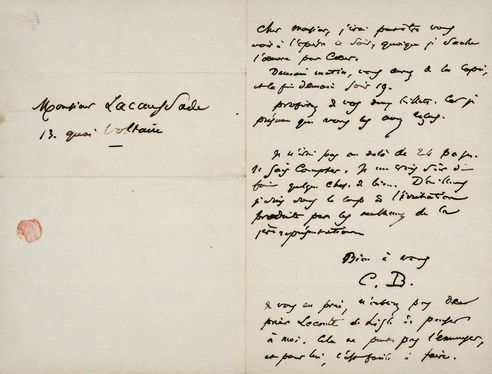 Monsieur Lacaussade
13. quai Voltaire
Cher Monsieur, j'irai peutêtre vous
voir à l'Opéra ce soir, quoique je sache
l'œuvre par Cœur.
Demain matin, vous aurez de la copie,
et la fin demain soir 19.
profitez de vos deux billets. Car je
présume que vous les avez
Je n'irai pas au delà de 24 pages.
Je sais Compter. Je me crois sûr de
faire quelque chose de bien. D'ailleurs
je suis sous le coup de l'irritation
produite par les malheurs de la
1ère représentation
Bien à vous
C. B.
Je vous en prie, n'oubliez pas de
prier Leconte de Lisle de penser
à moi. Cela ne peut pas l'ennuyer,
et pour lui, c'est facile à faire.